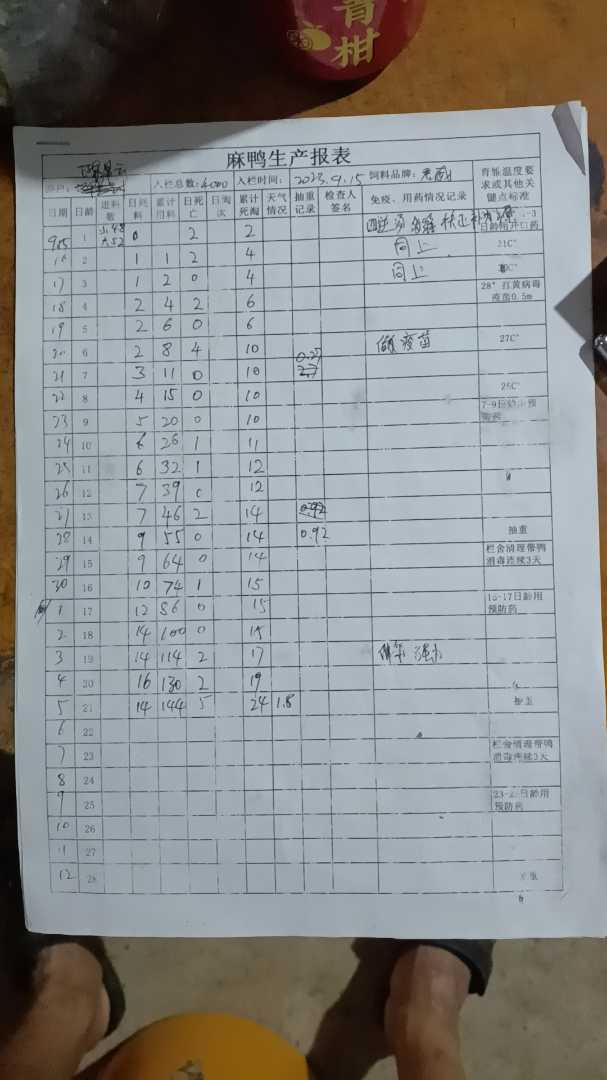 青
柑
麻鸭生产报表
入栏总数:4000 入栏时间: 2023.9.15 饲料品牌:
育雏温度要求或其他关键点标准
日期 日龄 进料数 日死料 累计用料 日死亡 日淘汰 累计死淘 天气情况 抽重记录 检查人签名 免疫、用药情况记录
1 小48 大52 0 2 2
16 2 1 1 2 4 同上 21C°
17 3 1 2 0 4 同上
18 4 2 4 2 6 28° 打黄病毒疫苗0.5m
19 5 2 6 0 6
20 6 2 8 4 10 做疫苗 27C°
21 7 3 11 0 10
22 8 4 15 0 10
23 9 5 20 0 10
24 10 6 26 1 11
25 11 6 32 1 12
26 12 7 39 0 12
27 13 7 46 2 14 0.92
28 14 9 55 0 14 0.92 抽重
29 15 9 64 0 14 栏舍清理带鸭消毒连续3天
30 16 10 74 1 15
1 17 12 86 0 15 15-17日龄用预防药
2 18 14 100 0 15
3 19 14 114 2 17
4 20 16 130 2 19
5 21 14 144 5 24 1.8
6 22
7 23 栏舍清理带鸭消毒连续3天
8 24
9 25 日龄用预防药
10 26
11 27
12 28